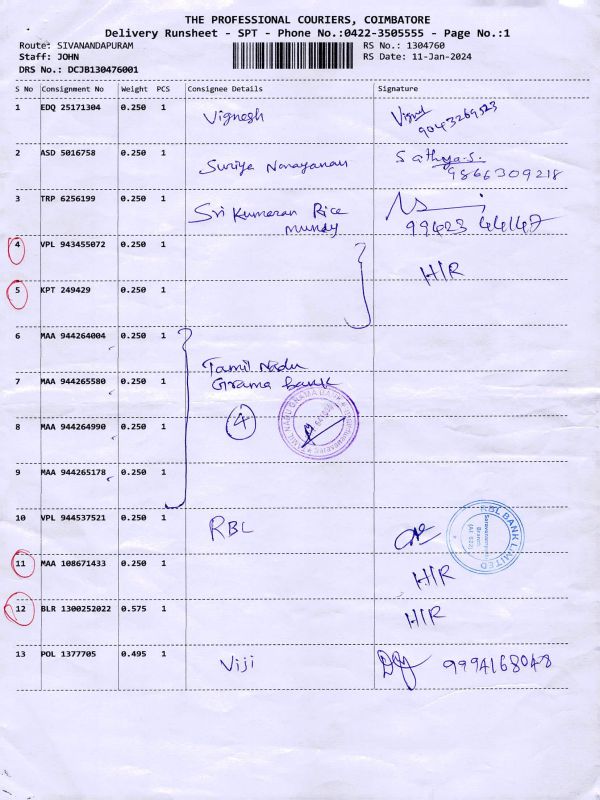 THE PROFESSIONAL COURIERS, COIMBATORE
Delivery Runsheet - SPT - Phone No.:0422-3505555 - Page No.:1
Route: SIVANANDAPURAM RS No.: 1304760
Staff: JOHN RS Date: 11-Jan-2024
DRS No.: DCJB130476001
S No Consignment No Weight PCS Consignee Details Signature
1 EDQ 25171304 0.250 1 Vignesh
9043269523
2 ASD 5016758 0.250 1 Suriya Narayanan Sathya.S.
9866309218
3 TRP 6256199 0.250 1 Sri Kumaran Rice
Mundy 99423 44147
4 VPL 943455072 0.250 1
H/R
5 KPT 249429 0.250 1
6 MAA 944264004 0.250 1
Tamil Nadu
7 MAA 944265580 0.250 1 Grama bank
TAMIL NADU GRAMA BANK
8 MAA 944264990 0.250 1 4
9 MAA 944265178 0.250 1
10 VPL 944537521 0.250 1 RBL
RBL BANK LIMITED
Branch
11 MAA 108671433 0.250 1 H/R
12 BLR 1300252022 0.575 1 H/R
13 POL 1377705 0.495 1 Viji 9994168048